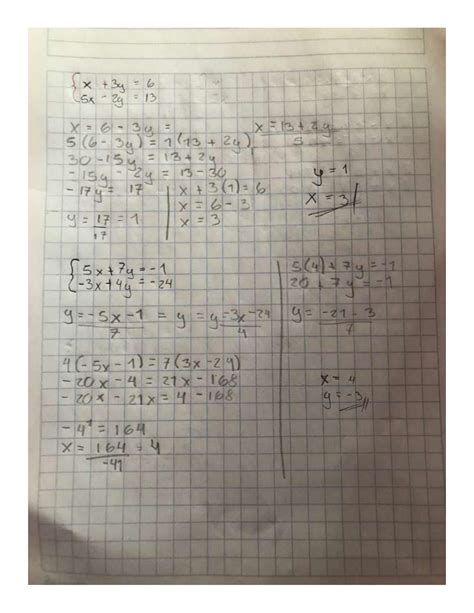 x + 3y = 6
5x - 2y = 13
x = 6 - 3y =
x = 13 + 2y
5
5(6 - 3y) = 1(13 + 2y)
30 - 15y = 13 + 2y
- 15y - 2y = 13 - 30
- 17y = 17
y = 17 = 1
17
x + 3(1) = 6
x = 6 - 3
x = 3
y = 1
x = 3
5x + 7y = -1
-3x + 4y = -24
y = -5x - 1 = y = y = 3x - 24
7
4
4(-5x - 1) = 7(3x - 24)
- 20x - 4 = 21x - 168
- 20x - 21x = 4 - 168
- 41 = 164
x = 164 = 4
-41
5(4) + 7y = -1
20 + 7y = -1
y = -21 - 3
7
x = 4
y = -3